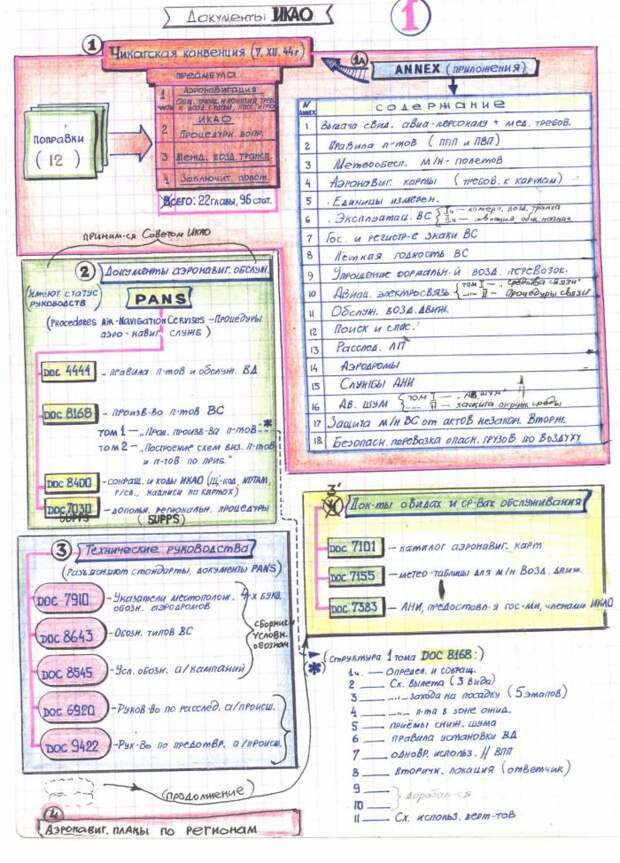 Документы ИКАО
1
1 Чикагская конвенция (7. XII. 44г)
преамбула
1 часть Аэронавигация
2 ИКАО
Процедурн. вопр.
3 Межд. возд. трансп.
4 Заключит. полож.
Всего: 22 главы, 96 стат.
поправки
(12)
1А ANNEX (приложения)
N ANNEX содержание
1 Выдача свид. авиа-персоналу + мед. требов.
2 Правила п-тов (ППП и ПВП)
3 Метеообесп. м/н- полетов
4 Аэронавиг. карты (требов. к картам)
5 Единицы измерен.
6 Эксплуатац. ВС { Iч – коммерч. возд. трансп.
IIч – авиация общ. назнач.
7 Гос. и регистр-е знаки ВС
8 Летная годность ВС
9 Упрощение формальн-й возд. перевозок.
10 Авиац. электросвязь { том I – средства связи
— " — II – процедуры связи
11 Обслуж. возд. движ.
12 Поиск и спас.
13 Расслед. ЛП
14 Аэродромы
15 Службы АНИ
16 Ав. шум { том I — " — Ав. шум"
— " — II – защита окруж. среды
17 Защита м/н ВС от актов незакон. Вторж.
18 Безопасн. перевозка опасн. грузов по воздуху
приним-ся Советом ИКАО
2 Документы аэронавиг. обслуж.
(имеют статус руководств)
PANS
(Procedures Air-Navigation Cervises – Процедуры
аэро-навиг. служб)
DOC 4444 – правила п-тов и обслуж. ВД
DOC 8168 – произв-во п-тов ВС
том 1 – „Прав. произв-ва п-тов" *
том 2 – „Построение схем виз. п-тов
и п-тов по приб."
DOC 8400 – сокращ. и коды ИКАО (Щ-код, NOTAM,
надписи на картах)
DOC 7030 – дополн. региональн. процедуры
SUPPS (SUPPS)
3 Технические руководства
(Разъясняют стандарты, документы PANS)
DOC 7910 – Указатели местополож. 4-х букв.
обозн. аэродромов
DOC 8643 – Обозн. типов ВС
DOC 8545 – Усл. обозн. а/кампаний
сборники условн. обознач
DOC 6920 – Руков-во по расслед. а/происш.
DOC 9422 – Рук-во по предотвр. а/происш.
(продолжение)
4
Аэронавиг. планы по регионам
3' Док-ты о видах и ср-вах обслуживания
DOC 7101 – каталог аэронавиг. карт
DOC 7155 – метео-таблицы для м/н Возд. движ.
DOC 7383 – АНИ, предоставл-я гос-ми, членами ИКАО
* (структура 1 тома DOC 8168:)
1ч. — Определ. и сокращ.
2 — Сх. вылета (3 вида)
3 — „— захода на посадку (5 этапов)
4 — „— п-та в зоне ожид.
5 — приёмы сниж. шума
6 — правила установки ВД
7 — одновр. использ. // ВПП
8 — вторичн. локация (ответчик)
9 —
10 — } дорабат-ся
11 — Сх. использ. верт-тов